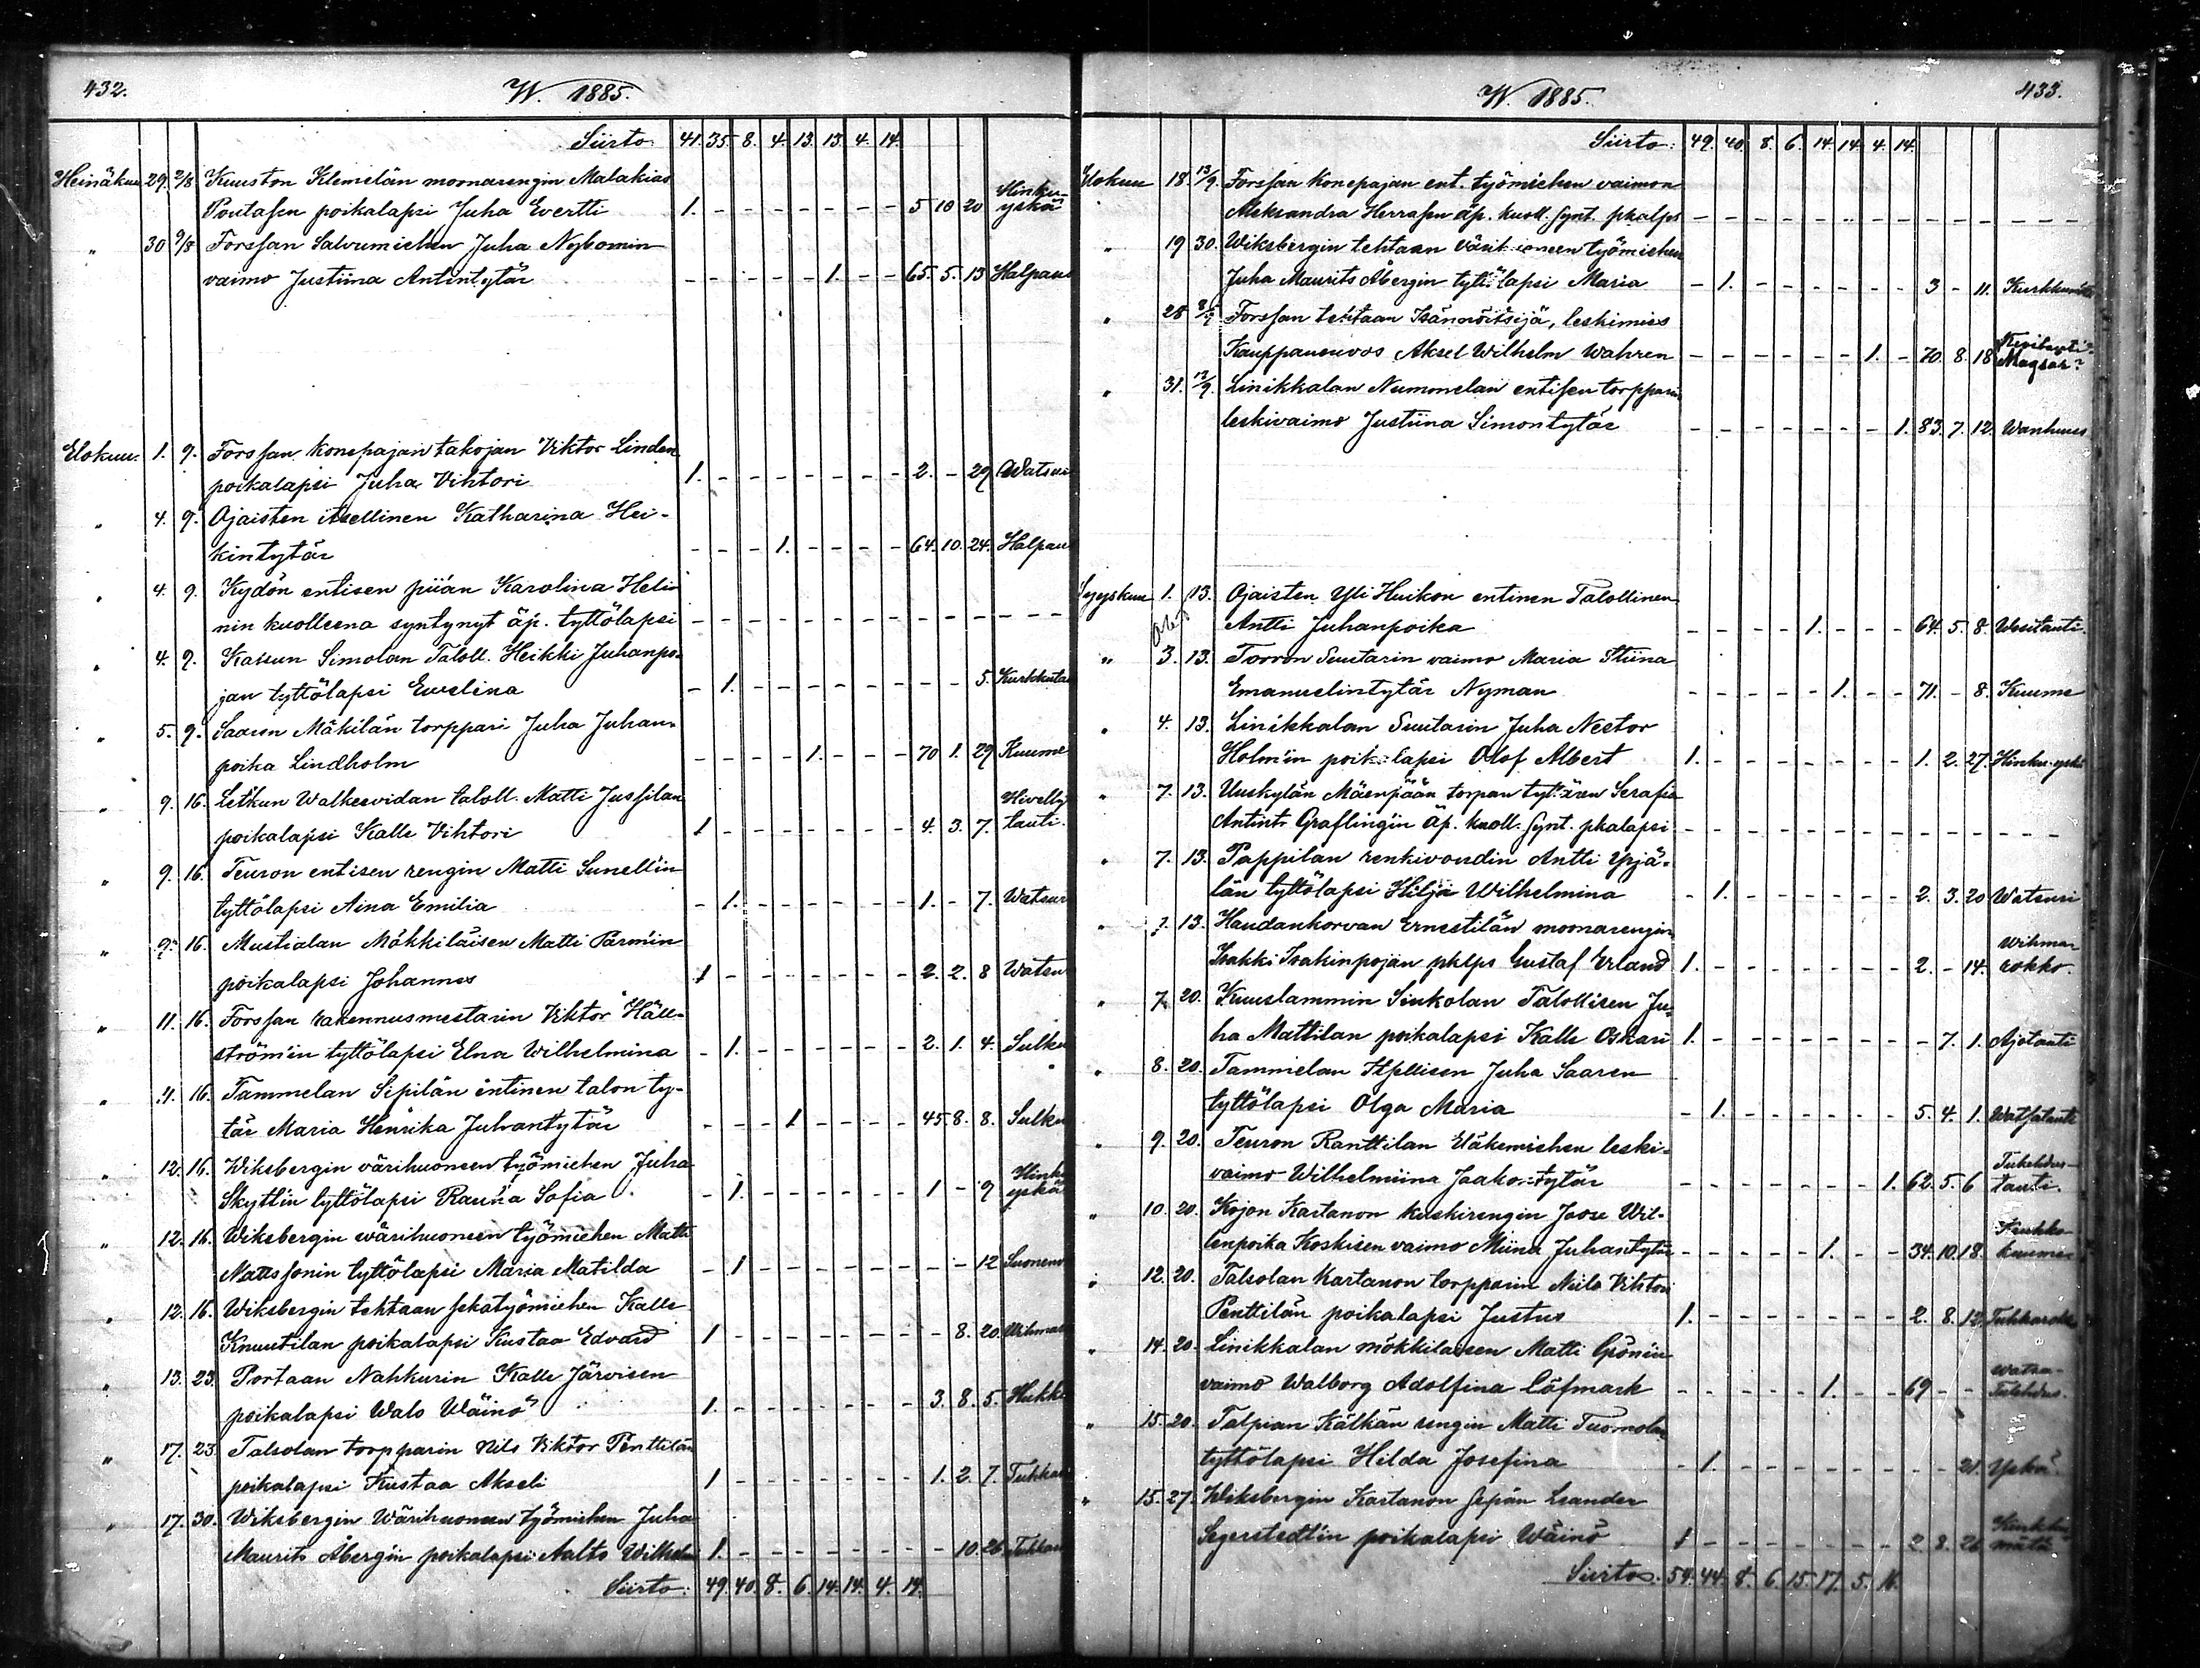 432.
W. 1885.
Siirto 41. 35. 8. 4. 13. 13. 4. 14.
Heinäkuu 29. 2/8 Kuuston Klemelän moonarengin Malakias
Poutasen poikalapsi Juha Evertti 1. - - - - - - - 5 10 20 Hinku-yskä
" 30 9/8 Forssan Salvumiehen Juha Nybomin
vaimo Justiina Antintytär - - - - - 1. - - 65. 5. 13 Halpaus
Elokuu. 1. 9. Forssan Konepajan takojan Viktor Linden
poikalapsi Juha Vihtori 1. - - - - - - - 2. - 29 Watsu
" 4. 9. Ojaisten itsellinen Katharina Hei-
kintytär - - - 1. - - - - 64. 10. 24. Halpau
" 4. 9. Kydön entisen piian Karolina Heli
nin kuolleena syntynyt äp. tyttölapsi - - - - - - - - - - -
" 4. 9. Kassun Simolan Taloll. Heikki Juhanpo-
jan tyttölapsi Ewelina - 1. - - - - - - - - 5. Kurkkuta
" 5. 9. Saaren Mäkilän torppari Juha Juhan-
poika Lindholm - - - - 1. - - - 70 1. 29 Kuume
" 9. 16. Letkun Walkeevidan taloll. Matti Jussilan
poikalapsi Kalle Vihtori 1 - - - - - - - 4. 3. 7. tauti.
" 9. 16. Teuron entisen rengin Matti Sunell'in
tyttölapsi Aina Emilia - 1. - - - - - - 1. - 7. Watsur
" 9. 16. Mustialan Mäkkiläisen Matti Parmin
poikalapsi Johannes 1 - - - - - - - 2. 2. 8 Watsu
" 11. 16. Forssan rakennusmestarin Viktor Häll-
ström'in tyttölapsi Elna Wilhelmina - 1. - - - - - - 2. 1. 4. Sulku
" 11. 16. Tammelan Sipilän entinen talon ty-
tär Maria Henrika Juhantytär - - - 1 - - - - 45. 8. 8. Sulku
" 12. 16. Wiksbergin värihuoneen työmiehen Juha
Skyttin tyttölapsi Rauha Sofia - 1. - - - - - - 1 - 9 Hinku yskä
" 12. 16. Wiksbergin wärihuoneen työmiehen Matti
Mattssonin tyttölapsi Maria Matilda - 1 - - - - - - - - 12 Suonenv
" 12. 16. Wiksbergin tehtaan sekatyömiehen Kalle
Knuutilan poikalapsi Kustaa Edvard 1 - - - - - - - - 8. 20. Wihma
" 13. 23. Portaan Nahkurin Kalle Järvisen
poikalapsi Walo Wäinö 1. - - - - - - - 3. 8. 5. Hukk
" 17. 23. Talsolan torpparin Nils Viktor Penttilän
poikalapsi Kustaa Akseli 1 - - - - - - - 1. 2. 7. Tuhka
" 17. 30. Wiksbergin Wärihuoneen työmiehen Juha
Maurits Åbergin poikalapsi Aalto Wilhelm 1. - - - - - - - - 10. 26 Tuhka
Siirto: 49. 40. 8. 6. 14. 14. 4. 14.
W. 1885.
433.
Siirto: 49. 40. 8. 6. 14. 14. 4. 14.
Elokuu 18. 13/9. Forssan Konepajan ent. työmiehen vaimon
Aleksandra Herrasen äp. kuoll. synt. phalps - - - - - - - - - - -
" 19 30. Wiksbergin tehtaan värihuoneen työmiehen
Juha Maurits Åbergin tyttölapsi Maria - 1. - - - - - - 3 - 11. Kurkkumätä
" 28 Forssan tehtaan Isännöitsijä, leskimies
Kauppaneuvos Aksel Wilhelm Wahren - - - - - - 1. - 70. 8. 18
" 31. 13/9. Linikkalan Nummelan entisen torpparin
leskivaimo Justiina Simontytär - - - - - - - 1. 83. 7. 12. Wanhuus
Syyskuu 1. 13. Ojaisten Yli Huikon entinen Talollinen
Antti Juhanpoika - - - - 1. - - - 64. 5. 8. Wesitauti.
" 3. 13. Torron Suutarin vaimo Maria Stiina
Emanuelintytär Nyman - - - - - 1. - - 71. - 8. Kuume
" 4. 13. Linikkalan Suutarin Juha Nestor
Holm'in poikalapsi Olof Albert 1. - - - - - - - 1. 2. 27. Hinku yskä
" 7. 13. Uuskylän Mäenpään torpan tyttären Serafia
Antintr Graflingin äp. kuoll. synt. phalapsi - - - - - - - - - - -
" 7. 13. Pappilan renkivoudin Antti Ypjä-
län tyttölapsi Hilja Wilhelmina - 1. - - - - - - 2. 3. 20 Watsuri
" 7. 13. Haudankorvan Ernestilän moonarengin
Isakki Isakinpojan phlps Gustaf Erland 1. - - - - - - - 2. - 14. Wihma-rokko.
" 7. 20. Kuuslammin Sinkolan Talollisen Ju-
ha Mattilan poikalapsi Kalle Oskari 1. - - - - - - - - 7. 1. Ajotauti
" 8. 20. Tammelan Itsellisen Juha Saaren
tyttölapsi Olga Maria - 1. - - - - - - 5. 4. 1. Watsatauti
" 9. 20. Teuron Ranttilan Eläkemiehen leski-
vaimo Wilhelmiina Jaakontytär - - - - - - - 1. 62. 5. 6 Tulehdus-tauti.
" 10. 20. Kojon Kartanon kuskirengin Joose Wil-
lenpoika Koskisen vaimo Miina Juhantytär - - - - - 1. - - 34. 10. 18. kuume
" 12. 20. Talsolan Kartanon torpparin Niilo Vihtori
Penttilän poikalapsi Justus 1. - - - - - - - 2. 8. 12. Tuhkarokko
" 14. 20. Linikkalan mökkiläisen Matti Grönin
vaimo Walborg Adolfina Löfmark - - - - - 1. - - 69 - - Watsa-Tulehdus.
" 15. 20. Talpian Kälkän rengin Matti Tuomolan
tyttölapsi Hilda Josefina - 1. - - - - - - - - 21. Yskä.
" 15. 27. Wiksbergin Kartanon Sepän Leander
Segerstedtin poikalapsi Wäinö 1 - - - - - - - 2. 8. 26 Kurkku mätä
Siirto. 54. 44. 8. 6. 15. 17. 5. 16.